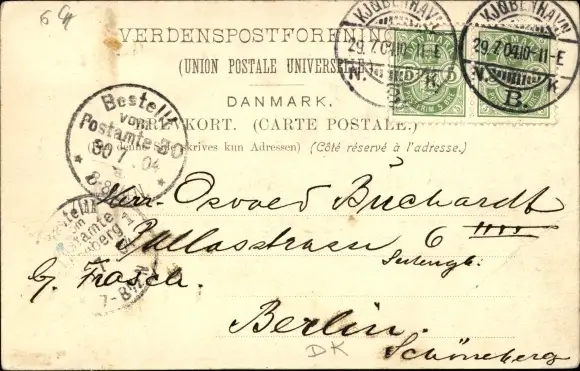 6
VERDENSPOSTFORENING
(UNION POSTALE UNIVERSELLE)
DANMARK.
BREVKORT. (CARTE POSTALE.)
(Paa denne Side skrives kun Adressen) (Côté réservé à l'adresse.)
KJØBENHAVN
29.7.04 10-11-E
N. K
KJØBENHAVN
29.7.04 10-11-E
N. B. K
5 5
Bestellt
vom
Postamte 30
30 7. 04
Herr Oswald Buchardt
Pallasstrasse 6
b/ Frosch.
Berlin.
Schöneberg
DK
Bestellt
vom
Postamte
Schöneberg 1
7-8